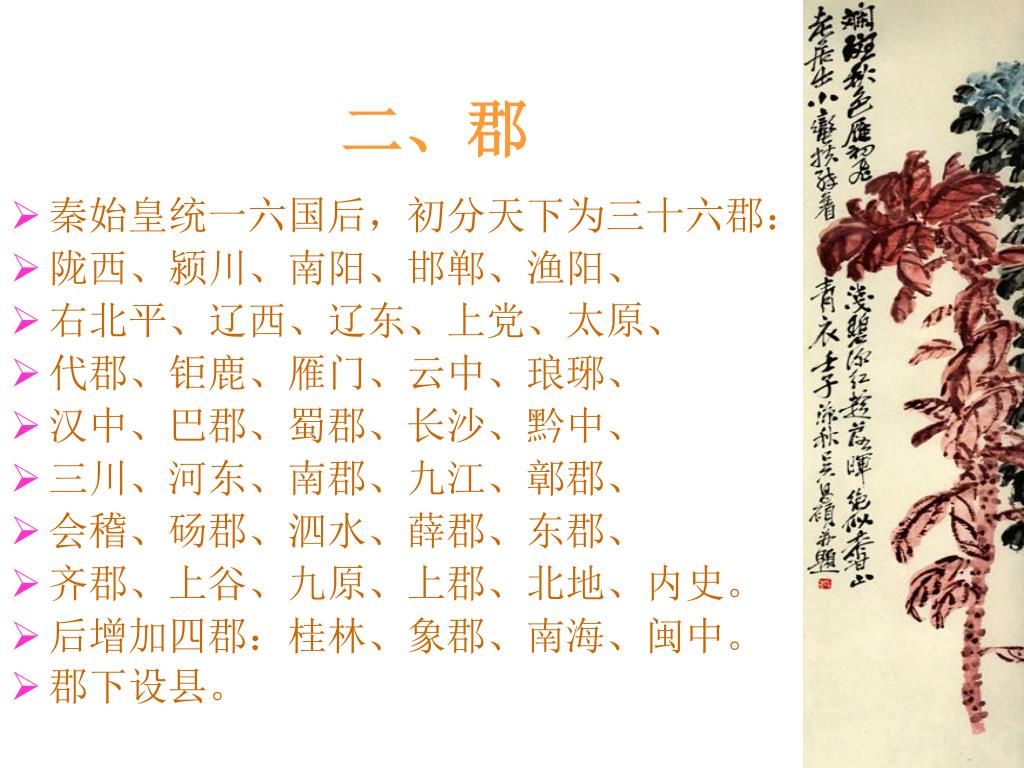 二、郡
秦始皇统一六国后，初分天下为三十六郡：
陇西、颍川、南阳、邯郸、渔阳、
右北平、辽西、辽东、上党、太原、
代郡、钜鹿、雁门、云中、琅琊、
汉中、巴郡、蜀郡、长沙、黔中、
三川、河东、南郡、九江、鄣郡、
会稽、砀郡、泗水、薛郡、东郡、
齐郡、上谷、九原、上郡、北地、内史。
后增加四郡：桂林、象郡、南海、闽中。
郡下设县。
斓斑秋色雁初飞
浅碧深红趁落晖
绝似香山
老居士
小蛮扶醉着
青衣
壬子深秋吴